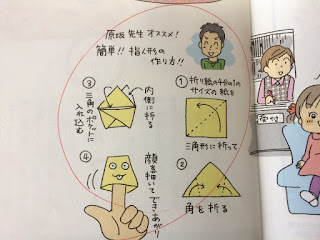 原坂先生オススメ!
簡単!!指人形の
作り方!!
①折り紙の4分の1の
サイズの紙を
三角形に折って
②
角を折る
③
内側に折る
三角のポケットに
入れ込む
④
顔を描いてできあがり
受付